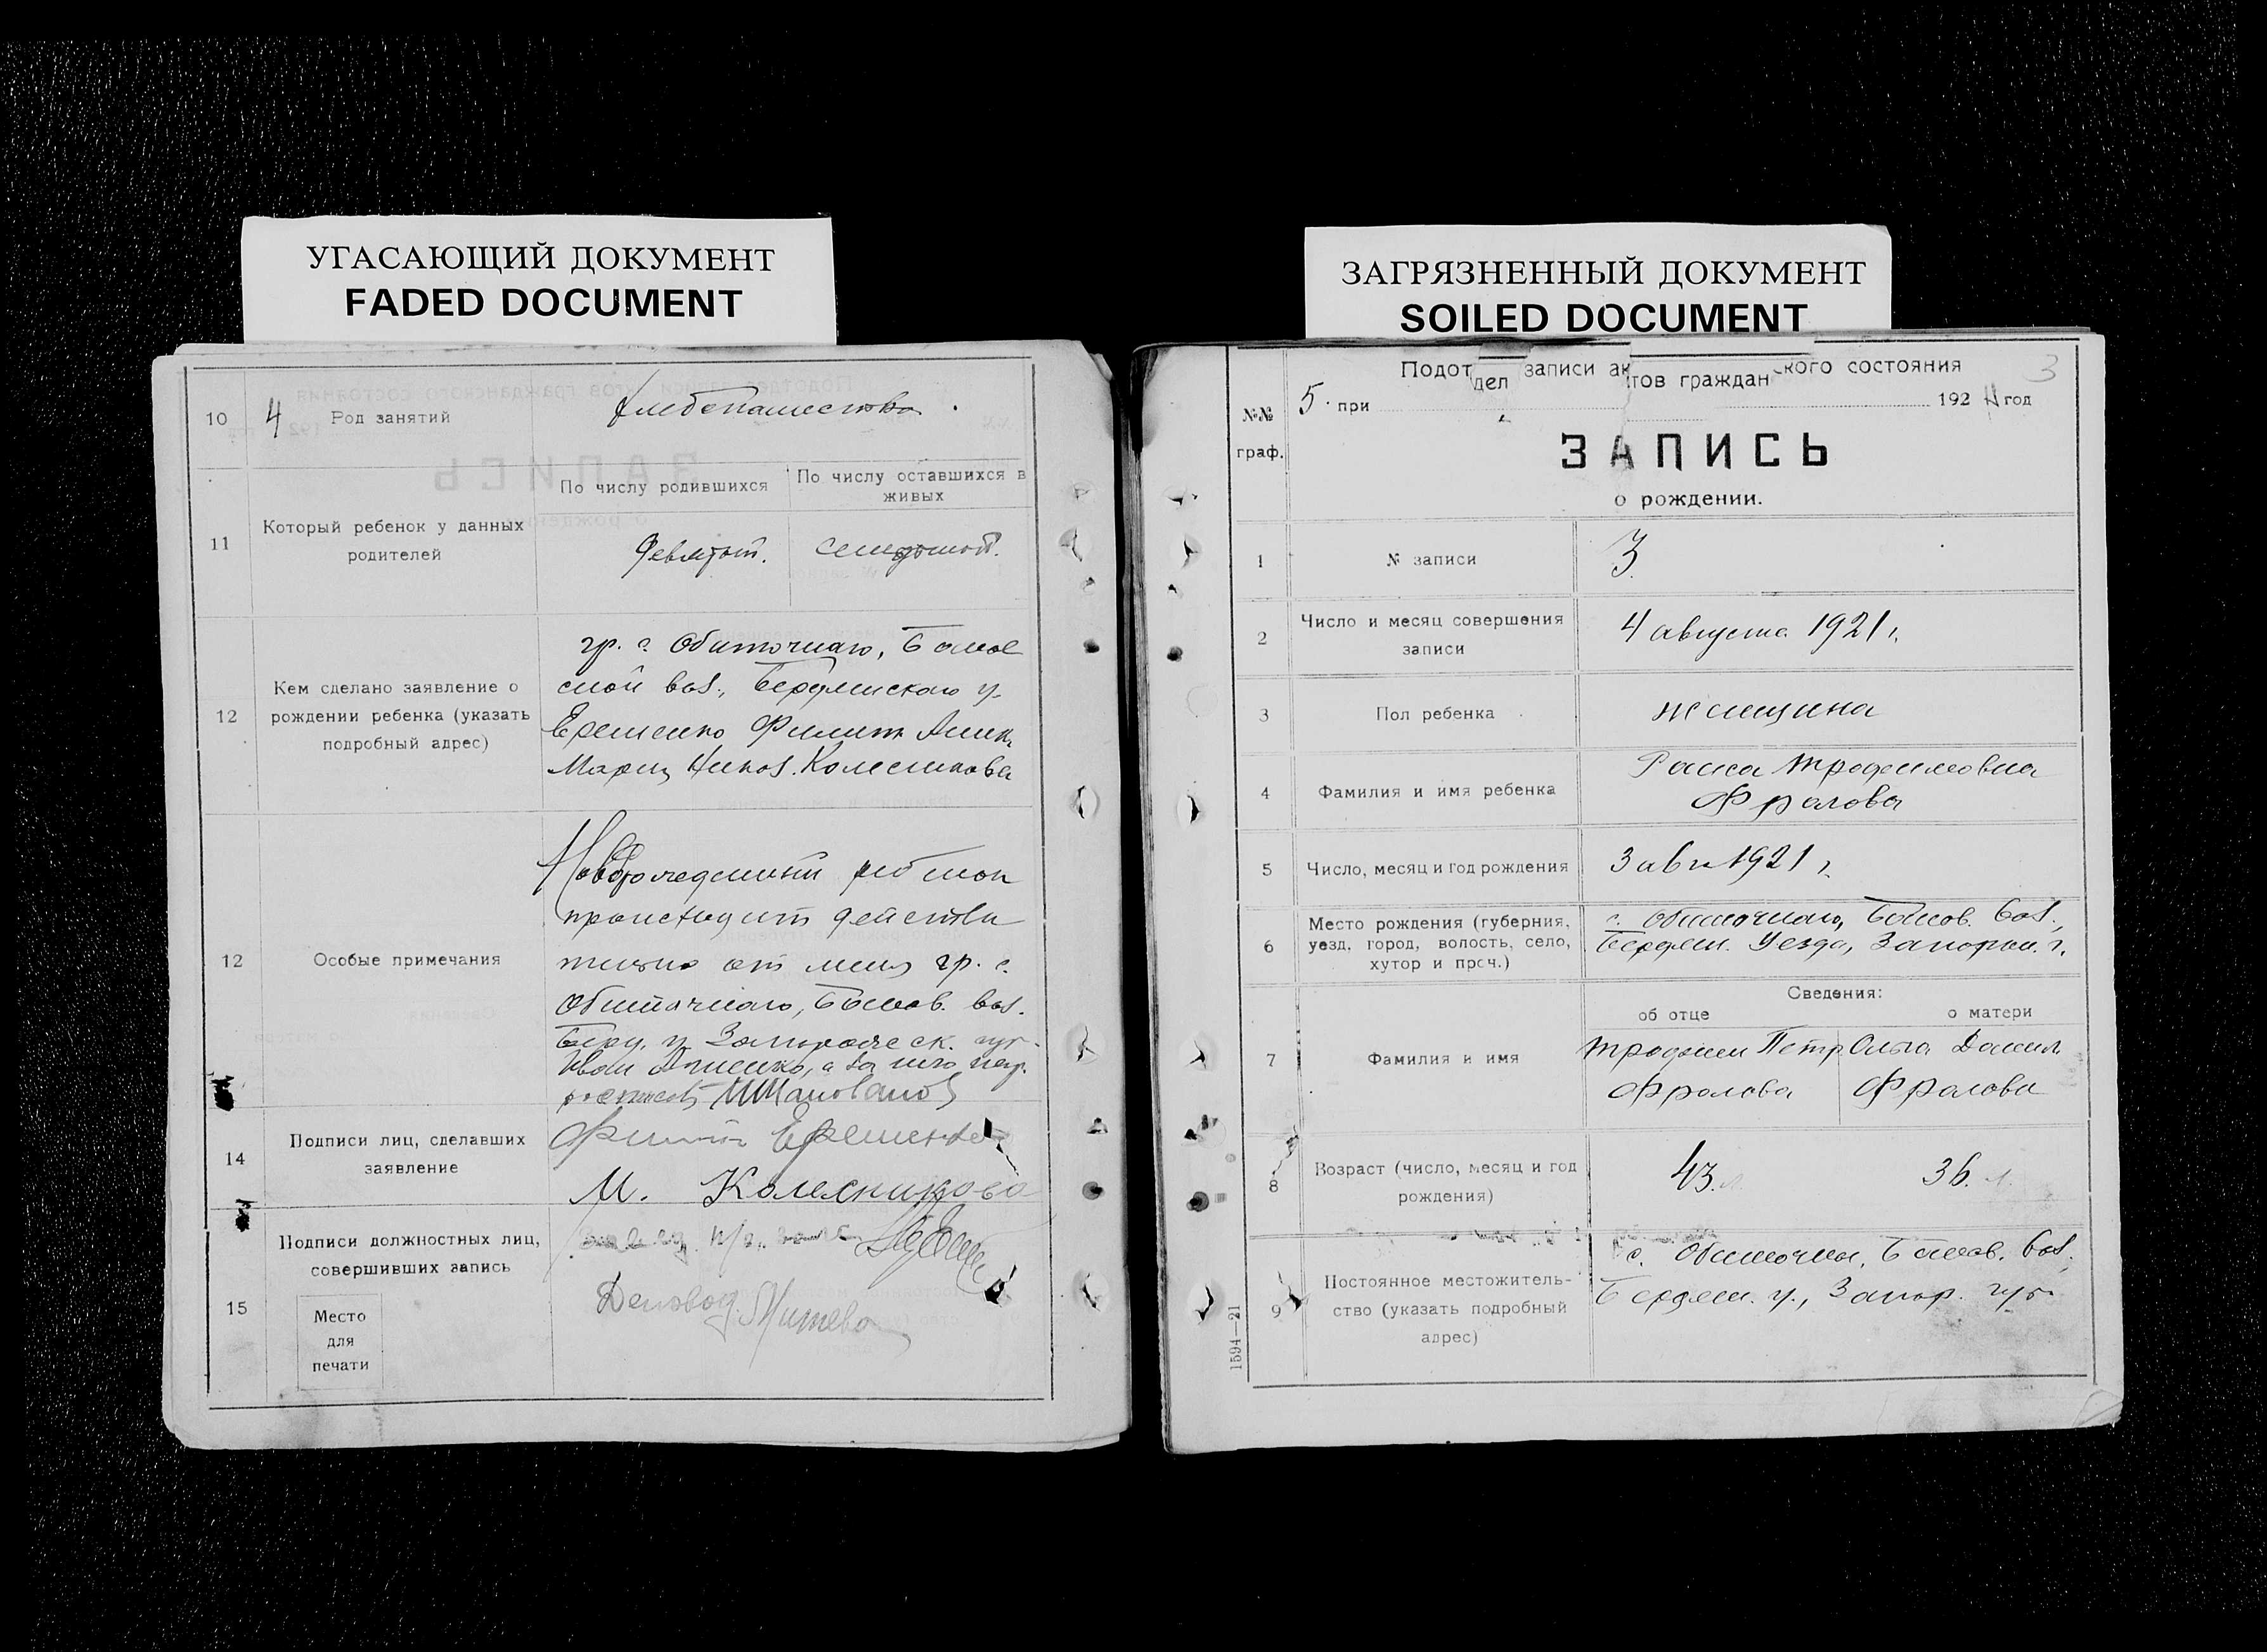 УГАСАЮЩИЙ ДОКУМЕНТ
FADED DOCUMENT
10
4
Род занятий
хлебопашество.
11
Который ребенок у данных
родителей
По числу родившихся
По числу оставшихся в
живых
Девятый.
12
Кем сделано заявление о
рождении ребенка (указать
подробный адрес)
гр. с. Обиточнаго,
вол., Бердянскаго у.
Еременко Филипп
Мария Никол. Колесникова
12
Особые примечания
Новорожденный ребенок
происходит действи
тельно от меня гр. с.
Обиточнаго, вол.
Берд. у. Запорожск. губ.
Иван а за него негр.
14
Подписи лиц, сделавших
заявление
Филипп Еременко
М. Колесникова
15
Подписи должностных лиц,
совершивших запись
Место
для
печати
Деловод.
ЗАГРЯЗНЕННЫЙ ДОКУМЕНТ
SOILED DOCUMENT
3
Подотдел записи актов гражданского состояния
5. при 1921 год
№№
граф.
ЗАПИСЬ
о рождении.
1
№ записи
3
2
Число и месяц совершения
записи
4 августа 1921 г.
3
Пол ребенка
женщина
4
Фамилия и имя ребенка
Раиса Трофимовна
Фролова
5
Число, месяц и год рождения
3 авг 1921 г.
6
Место рождения (губерния,
уезд, город, волость, село,
хутор и проч.)
с. Обиточнаго, вол.,
Бердян. Уезда, Запорож. г.
Сведения:
об отце
о матери
7
Фамилия и имя
Трофим Петр.
Фролова
Ольга Данил.
Фролова
8
Возраст (число, месяц и год
рождения)
43 л.
36 л.
9
Постоянное местожитель-
ство (указать подробный
адрес)
с. Обиточна, вол.
Бердян. у., Запор. губ.
1594—21